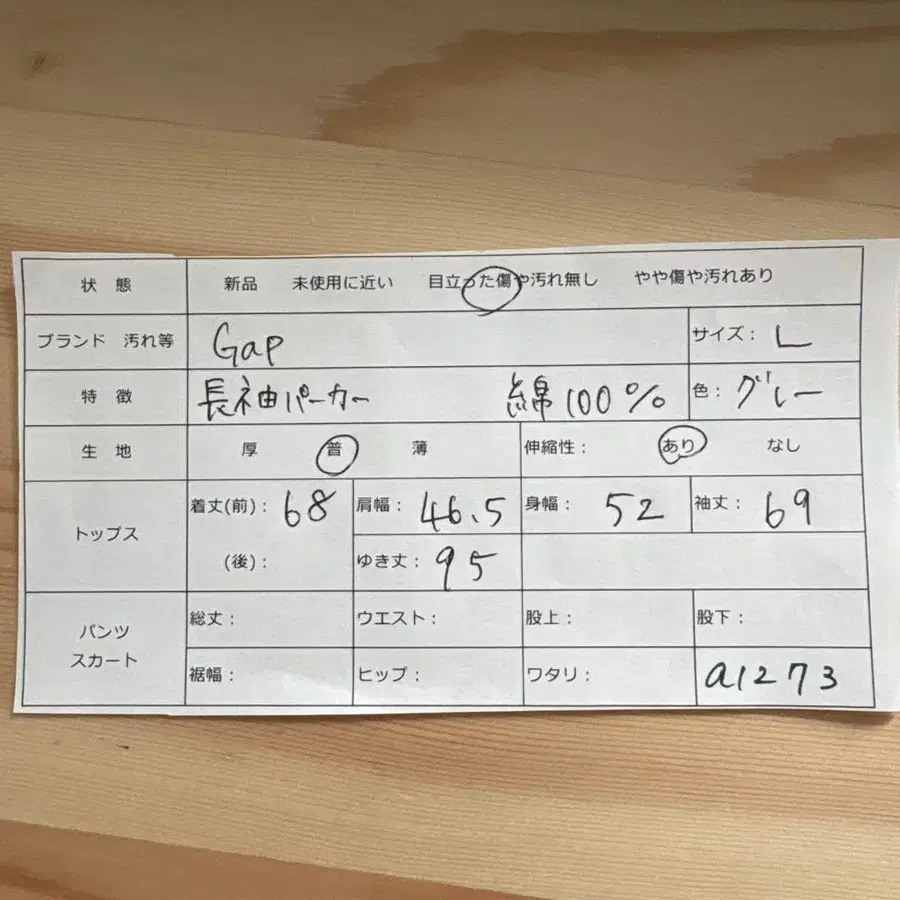 状 態 新品 未使用に近い 目立った傷や汚れ無し やや傷や汚れあり
ブランド 汚れ等 Gap サイズ: L
特 徴 長袖パーカー 綿100% 色: グレー
生 地 厚 普 薄 伸縮性: あり なし
トップス 着丈(前): 68 肩幅: 46.5 身幅: 52 袖丈: 69
(後): ゆき丈: 95
パンツ 総丈: ウエスト: 股上: 股下:
スカート 裾幅: ヒップ: ワタリ: a1273